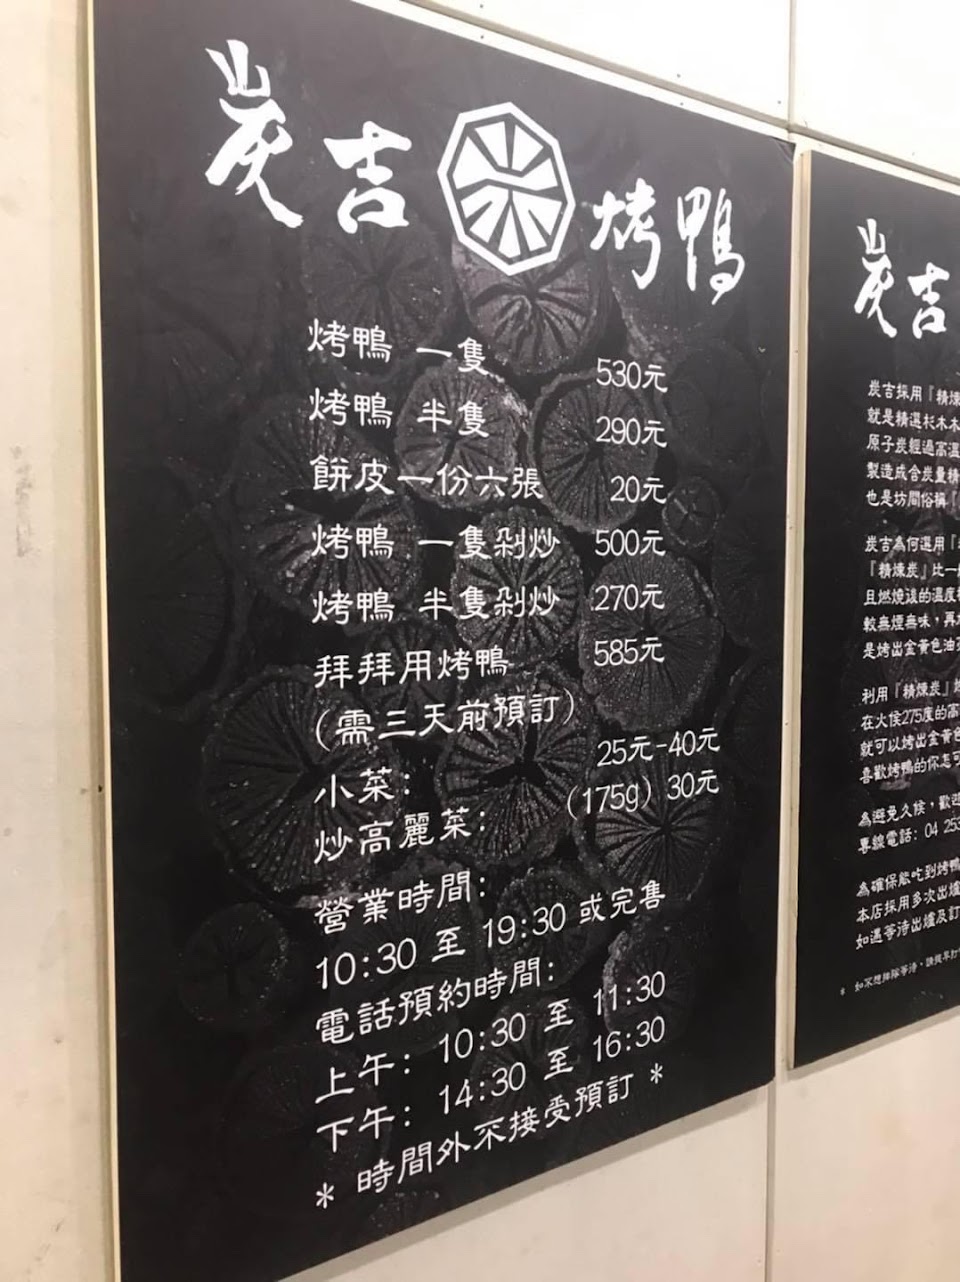 炭吉 烤鴨
烤鴨 一隻 530元
烤鴨 半隻 290元
餅皮一份六張 20元
烤鴨 一隻剁炒 500元
烤鴨 半隻剁炒 270元
拜拜用烤鴨 585元
(需三天前預訂)
小菜: 25元-40元
炒高麗菜: (175g) 30元
營業時間:
10:30 至 19:30 或完售
電話預約時間:
上午: 10:30 至 11:30
下午: 14:30 至 16:30
* 時間外不接受預訂 *
炭吉
炭吉採用『精煉
就是精選杉木木
原子炭經過高溫
製造成含炭量精
也是坊間俗稱『
炭吉為何選用『
『精煉炭』比一
且燃燒後的溫度
較無煙無味，再
是烤出金黃色油
利用『精煉炭』
在火侯275度的高
就可以烤出金黃色
喜歡烤鴨的你怎可
為避免久候，歡迎
專線電話: 04 253
為確保能吃到烤鴨
本店採用多次出爐
如遇等待出爐及訂
* 如不想排隊等待、請提早打